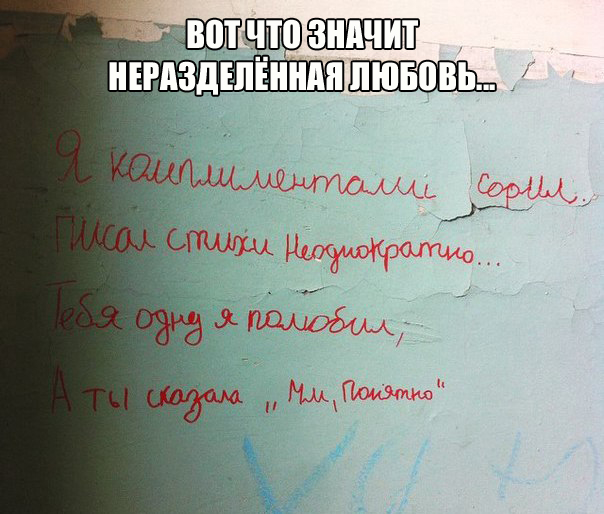 ВОТ ЧТО ЗНАЧИТ
НЕРАЗДЕЛЁННАЯ ЛЮБОВЬ...
Я комплиментами сорил..
Писал стихи неоднократно...
Тебя одну я полюбил,
А ты сказала „Мм, Понятно"